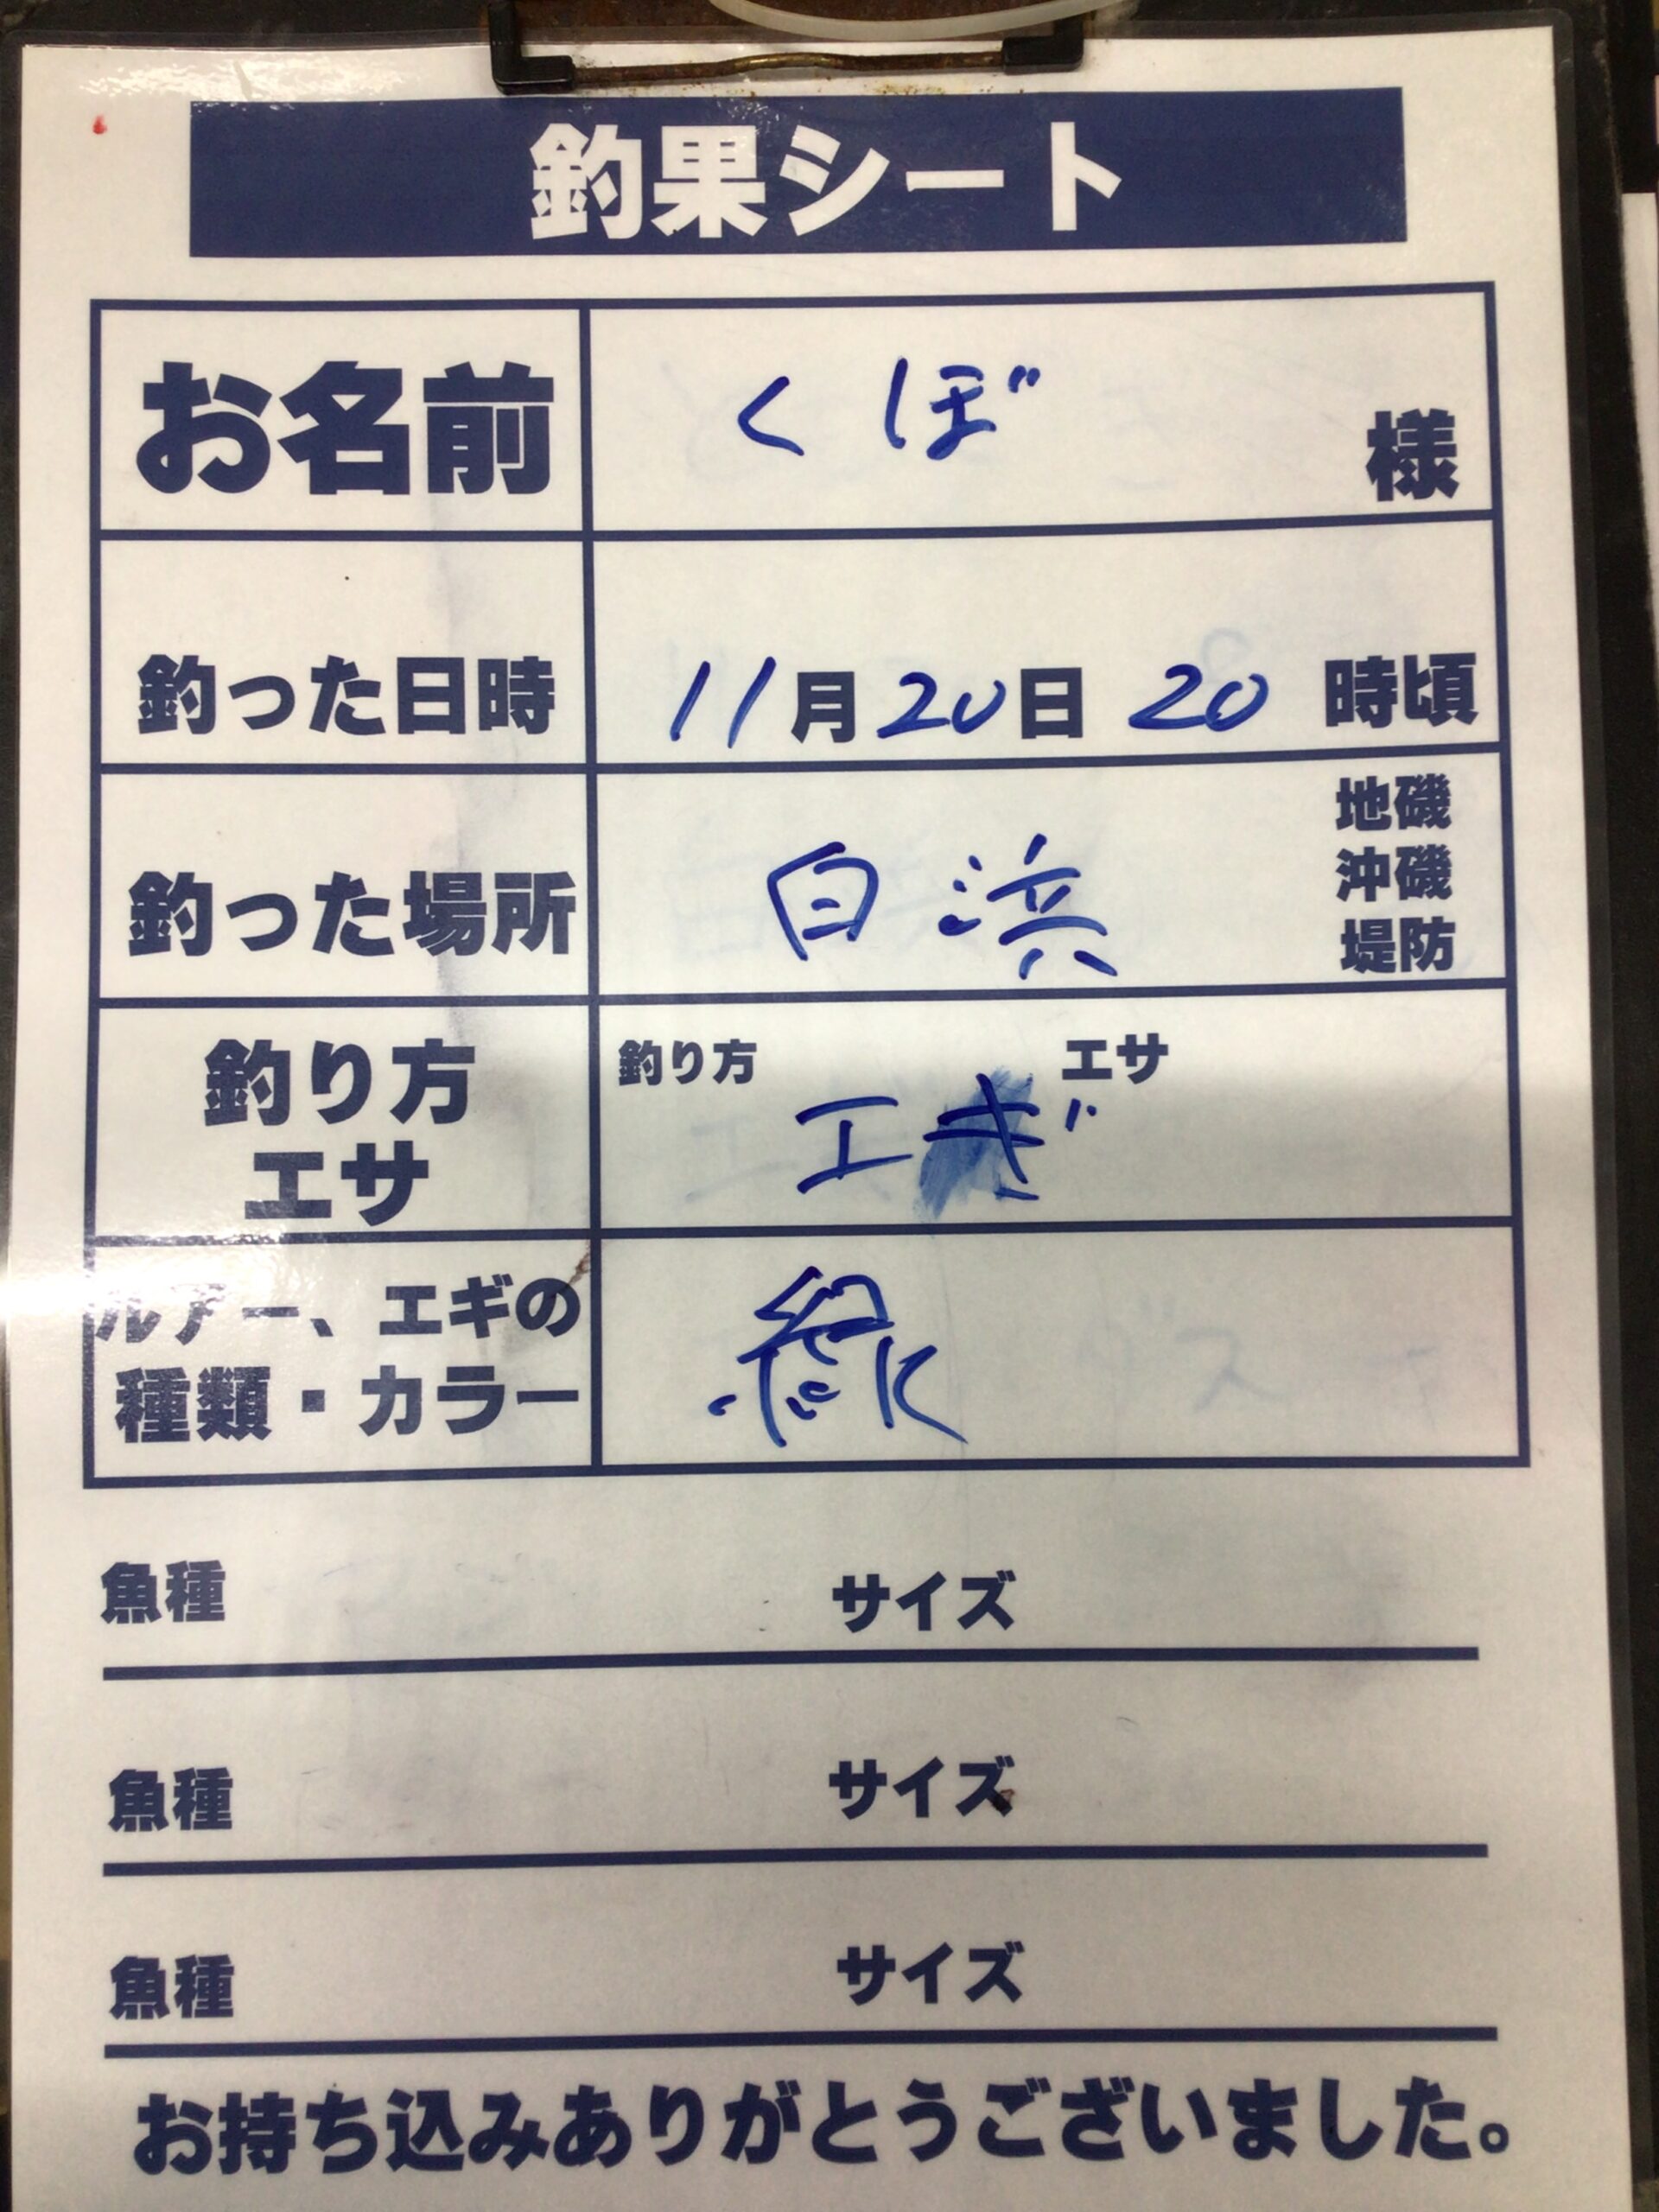 釣果シート
お名前 くぼ 様
釣った日時 11月20日 20時頃
釣った場所 白浜 地磯 沖磯 堤防
釣り方 エサ
釣り方 エサ
エギ
ルアー、エギの
種類・カラー
緑
魚種 サイズ
魚種 サイズ
魚種 サイズ
お持ち込みありがとうございました。